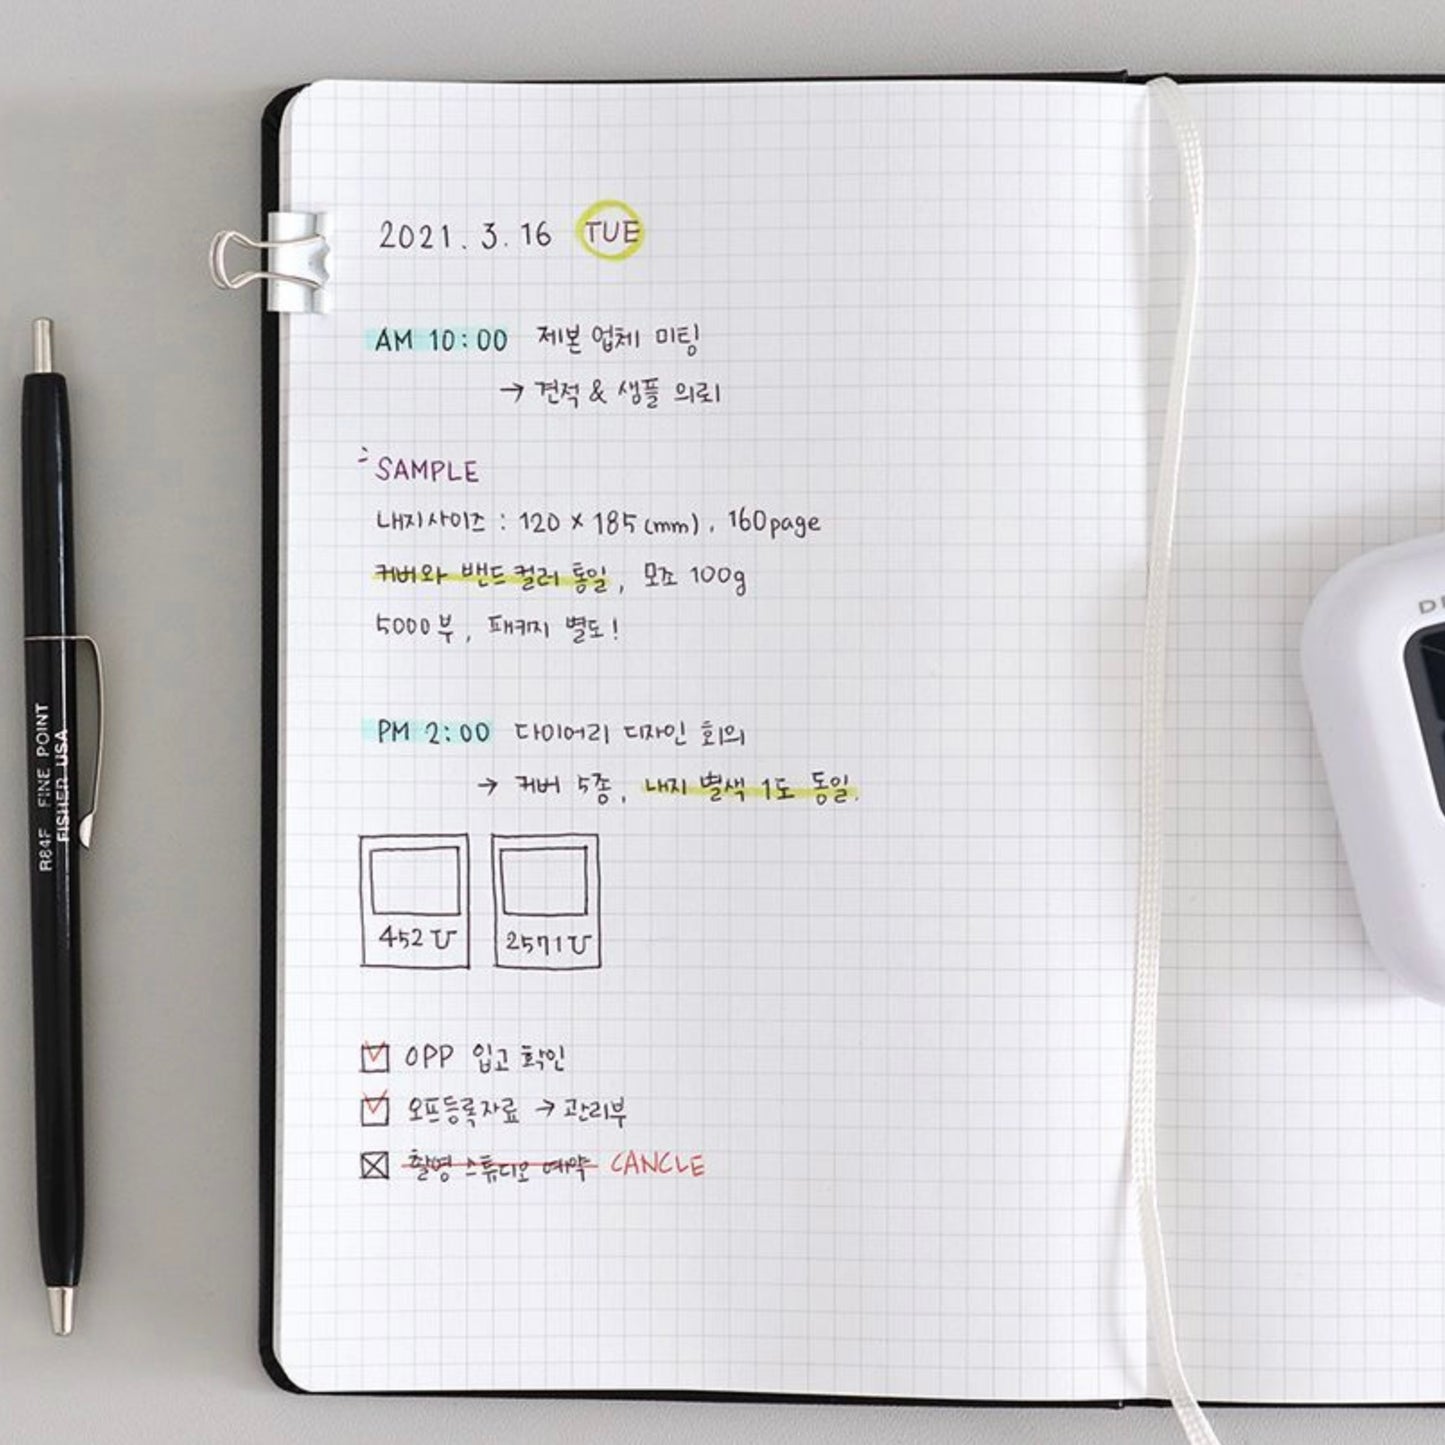 2021. 3. 16 TUE
AM 10:00 제본 업체 미팅
→ 견적 & 샘플 의뢰
SAMPLE
내지사이즈 : 120 × 185 (mm), 160page
커버와 밴드 컬러 통일, 모조 100g
5000부, 패키지 별도!
PM 2:00 다이어리 디자인 회의
→ 커버 5종, 내지 별색 1도 동일.
452 U
2571 U
OPP 입고 확인
오프등록자료 → 관리부
촬영 스튜디오 예약 CANCLE
R84F FINE POINT
FISHER USA